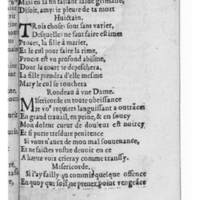 Disoit, amy: je pleure de ta mort
Huictain.
TRois choses sont sans varier,
Desquelles ne faut faire estimes
Prouer, la fille à marier,
Et le cul pour faire la rime,
Procés est vn profond abisme,
Dont la court te depeschera,
La fille prendra d'elle mesme
Mary le cul se touchera
Rondeau à vne Dame.
MIsericorde en toute obeissance
Ie vo' requiers languissant a outrãce
En grand trauail, en peine, & en soucy
Mon dolent cueur de douleur est noircy
Et si porte tresdure penitence
Si vous n'auez de mon mal souuenance,
Et ne faictes vostre deuoir en ce
A haute voix crieray comme transsy.
Misericorde.
Si i'ay failly, ou commis quelque offence
En quoy que soit ne prenez point vengeãce